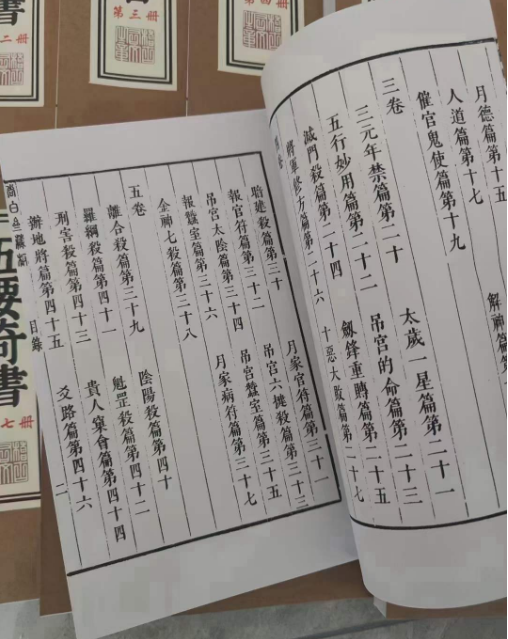 書
二册
第三册
第四册
月德篇第十五 解神篇第
人道篇第十七
催官鬼使篇第十九
三卷
三元年禁篇第二十 太歲一星篇第二十一
五行妙用篇第二十二 吊宮的命篇第二十三
滅門殺篇第二十四 劔鋒重轉篇第二十五
將軍修方篇第二十六 十惡大敗篇第二十七
胎建殺篇第三十 月家官符篇第三十一
報官符篇第三十二 吊宮六捷殺篇第三十三
吊宮太陰篇第三十四 吊宮蠶室篇第三十五
報蠶室篇第三十六 月家病符篇第三十七
金神七殺篇第三十八
五卷
離合殺篇第三十九 陰陽殺篇第四十
羅網殺篇第四十一 魁罡殺篇第四十二
刑害殺篇第四十三 貴人集會篇第四十四
辦地將篇第四十五 爻路篇第四十六
目錄 二
五要奇書
七册